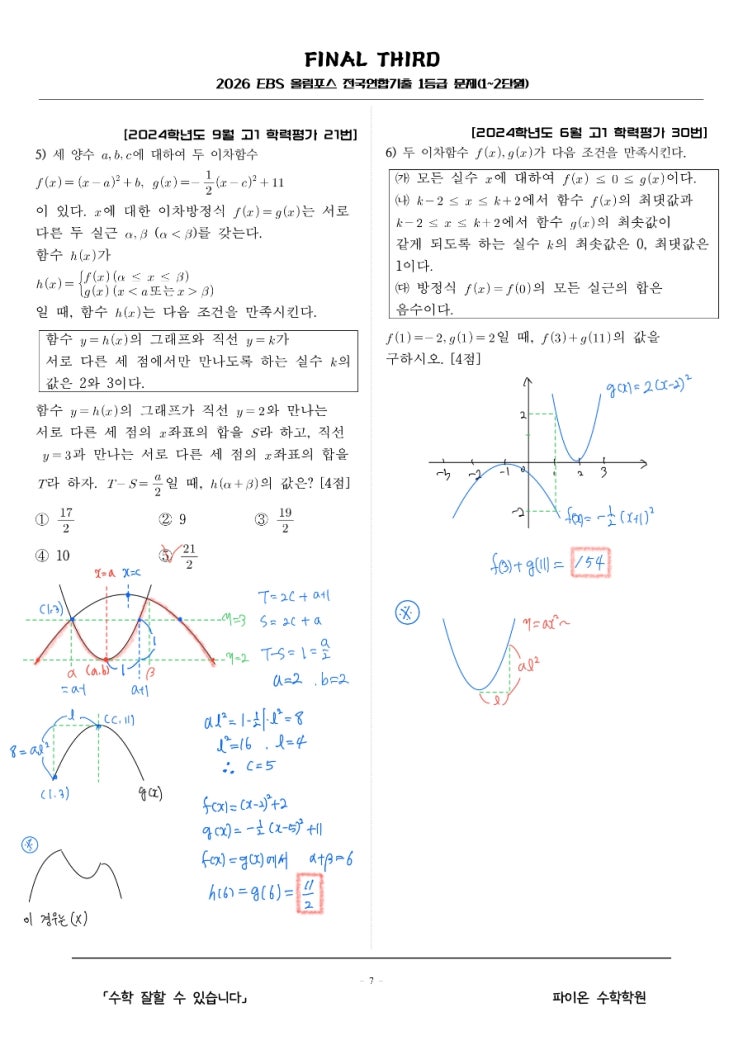 FINAL THIRD
2026 EBS 올림포스 전국연합기출 1등급 문제(1~2단원)
[2024학년도 9월 고1 학력평가 21번]
5) 세 양수 a, b, c에 대하여 두 이차함수
f(x) = (x-a)²+b, g(x) = -1/2(x-c)²+11
이 있다. x에 대한 이차방정식 f(x)=g(x)는 서로
다른 두 실근 α, β (α<β)를 갖는다.
함수 h(x)가
h(x) = { f(x) (α ≤ x ≤ β)
g(x) (x < α 또는 x > β)
일 때, 함수 h(x)는 다음 조건을 만족시킨다.
함수 y=h(x)의 그래프와 직선 y=k가
서로 다른 세 점에서만 만나도록 하는 실수 k의
값은 2와 3이다.
함수 y=h(x)의 그래프가 직선 y=2와 만나는
서로 다른 세 점의 x좌표의 합을 S라 하고, 직선
y=3과 만나는 서로 다른 세 점의 x좌표의 합을
T라 하자. T-S=a/2일 때, h(α+β)의 값은? [4점]
① 17/2 ② 9 ③ 19/2
④ 10 ⑤ 21/2
x=a x=c
(1.3)
y=3
y=2
α (a.b) 1 β
=a-1 a+1
1
T=2c+a+1
S=2c+a
T-S=1=a/2
a=2 . b=2
l (c, 11)
8=al²
(1.3) g(x)
al²=|-1/2|·l²=8
l²=16 . l=4
∴ c=5
f(x)=(x-2)²+2
g(x)=-1/2(x-5)²+11
f(x)=g(x)에서 α+β=6
h(6)=g(6)=
※
이 경우는(X)
[2024학년도 6월 고1 학력평가 30번]
6) 두 이차함수 f(x), g(x)가 다음 조건을 만족시킨다.
㈎ 모든 실수 x에 대하여 f(x) ≤ 0 ≤ g(x)이다.
㈏ k-2 ≤ x ≤ k+2에서 함수 f(x)의 최댓값과
k-2 ≤ x ≤ k+2에서 함수 g(x)의 최솟값이
같게 되도록 하는 실수 k의 최솟값은 0, 최댓값은
1이다.
㈐ 방정식 f(x)=f(0)의 모든 실근의 합은
음수이다.
f(1)=-2, g(1)=2일 때, f(3)+g(11)의 값을
구하시오. [4점]
g(x)=2(x-2)²
2
-3 -2 -1 0 1 2 3
-2
f(x)=-1/2(x+1)²
f(3)+g(11)= 154
※
y=ax²~
al²
l
- 7 -
「수학 잘할 수 있습니다」
파이온 수학학원